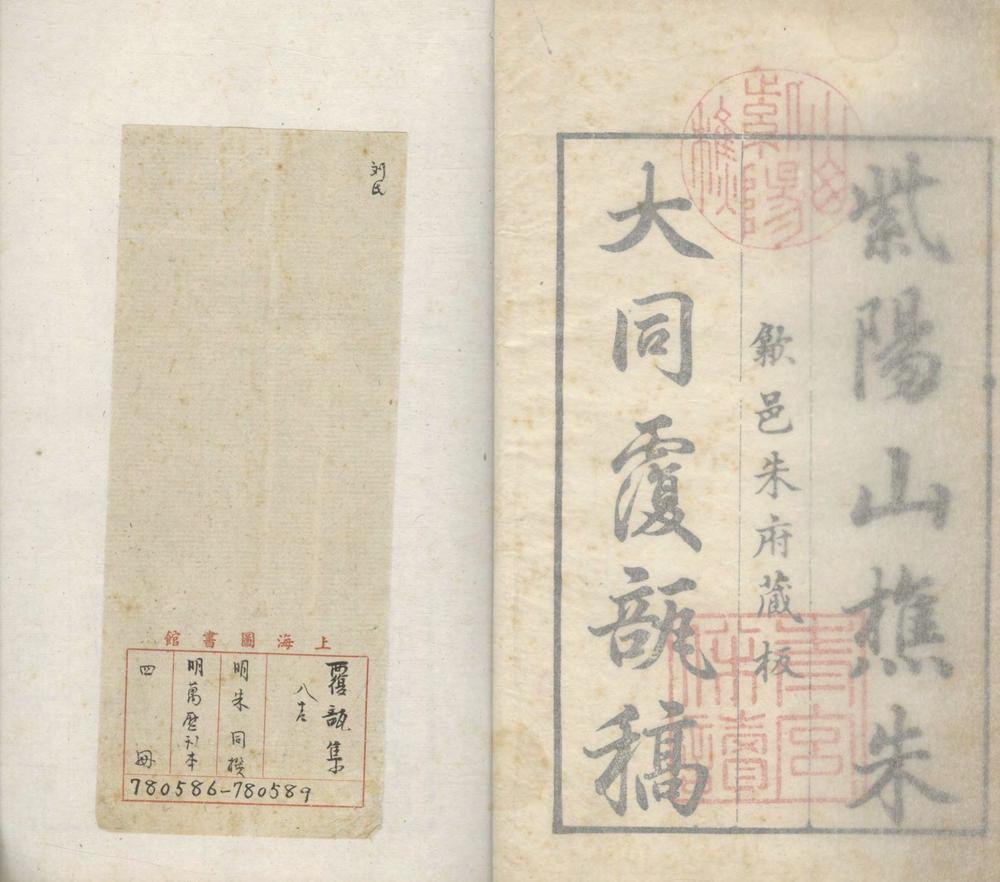 紫陽山樵朱
歙邑朱府藏板
大同覆瓿稿
刘氏
上海圖書館
覆瓿集
明朱同撰
明萬歷刊本
四冊
780586-780589